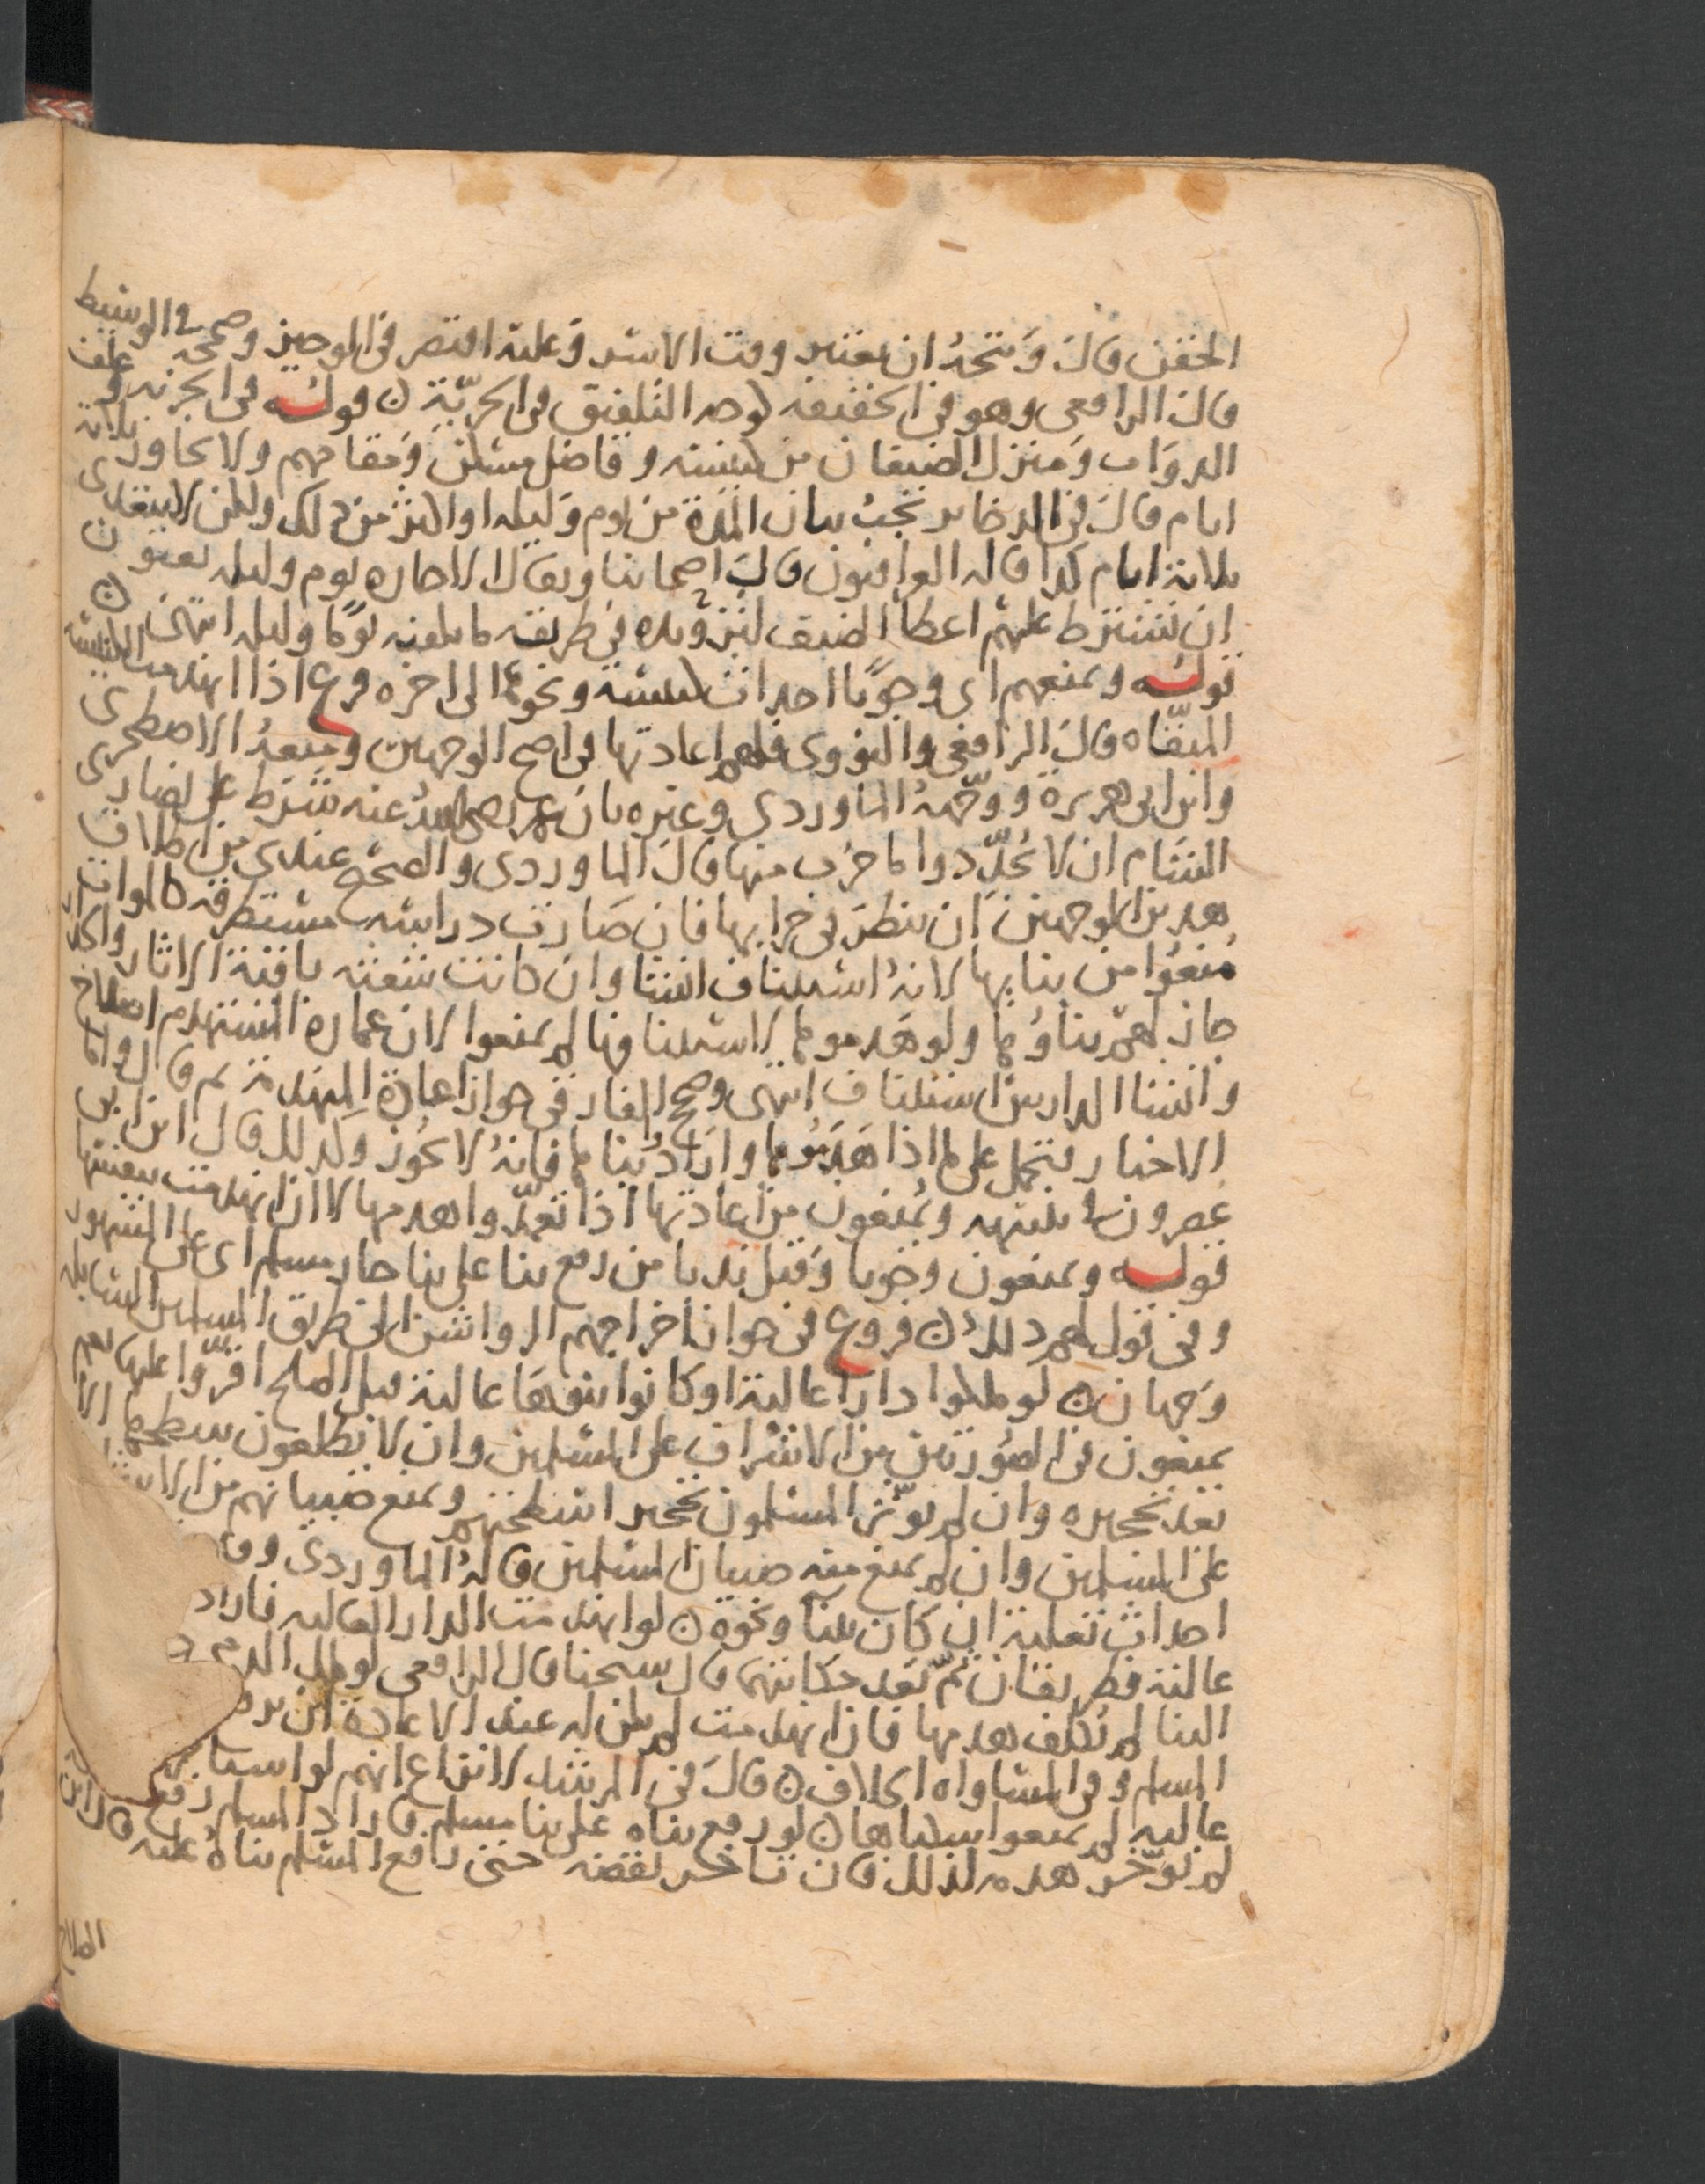 الحقن قال ويتجه ان يعتبر وقت الاسر وعليه اقتصر في الوجيز وصححه في الوسيط
قال الرافعي وهو في الحقيقة لوجه التلفيق في الحرية ن قوله في الجزية وعلف
الدواب ومنزل الضيفان من كنيسة وفاضل مسكن ومقامهم ولا يجاوز ثلاثة
ايام قال في الدخاير يجب بيان المدة من يوم وليلة او اكثر من ذلك ولكن لا يتعدى
ثلاثة ايام كذا قاله العراقيون قال اصحابنا ويقال الاجازه يوم وليله يعنون
ان يشترط عليهم اعطا الضيف لتزويده في طريقه ما يكفيه يوما وليله انتهى ن
قوله ويمنعهم اي وجوبا احداث كنيسة ونحوها الى اخره فرع اذا انهدمت الكنيسة
المبقاه قال الرافعي والنووي فلهم اعادتها في اصح الوجهين ومنعه الاصطخري
وابن ابي هريرة ووجهه الماوردي وغيره بان عمر رضي الله عنه شرط على نصارى
الشام ان لا يجددوا ما خرب منها قال الماوردي والصحيح عندي من اطلاق
هذين الوجهين ان ينظر في خرابها فان صارت دراسه مستطرقه كالموات
منعوا من بنايها لانه استيناف انشا وان كانت شعثه باقية الاثار والجدر
جاز لهم بناوها ولو هدموها لاستينافها لم يمنعوا لان عمارة المستهدم اصلاح
وانشا الدارس استيناف انتهى وصحح الفارقي جواز اعادة المنهدمة ثم قال واما
الاخبار فتحمل على ما اذا هدموها وارادوا بناها فانه لا يجوز وكذلك قال ابن ابي
عصرون في تنبيهه ويمنعون من اعادتها اذا تعمدوا هدمها لا ان انهدمت بنفسها
قوله ويمنعون وجوبا وقيل ندبا من رفع بنا على بنا جار مسلم اي على المشهور
وفي قول لهم ذلك ن فروع في جواز اخراجهم الرواشن الى طريق المسلمين السابله
وجهان ن لو ملكوا دارا عالية او كانوا بنوها عالية قبل الصلح اقروا عليها نعم
يمنعون في الصورتين من الاشراف على المسلمين وان لا يطلعون سطحها الا
بعد تحجيره وان لم يوثر المسلمون تحجير اسطحتهم ويمنع صبيانهم من الا
على المسلمين وان لم يمنع منه صبيان المسلمين قاله الماوردي وو
احداث تعلية ان كان بنا ونحوه ن لو انهدمت الدار العاليه فاراد
عالية فطريقان ثم بعد حكايتهما قال شيخنا قال الرافعي لو ملك الذمي د
البنا لم يكلف هدمها فان انهدمت لم يكن له عند الاعادة ان ير
المسلم وفي المساواه الخلاف ن قال في المرشد لا نزاع انهم لو استا
عاليه لم يمنعوا سكناها ن لو رفع بناه على بنا مسلم فاراد المسلم رفع
لم يوخر هدمه لذلك فان تاخر نقضه حتى رفع المسلم بناه عليه قال ابن